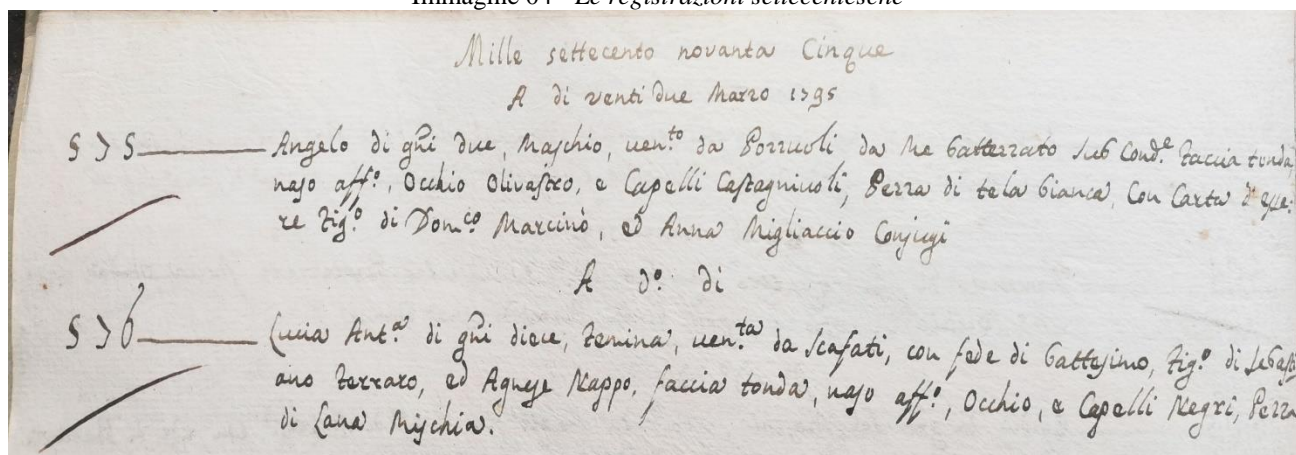 Immagine 64 - Le registrazioni settecentesche
Mille settecento novanta Cinque
A di venti due Marzo 1795
575 Angelo di gñi due, Maschio, ven.to da Pozzuoli da Me battezzato sub Cond.e faccia tonda,
naso aff.o, Occhio Olivastro, e Capelli Castagnivoli, Pezza di tela bianca, Con Carta d'esse:
re fig.o di Dom.co Marcinò, ed Anna Migliaccio Conjugi
A d.o di
576 Lucia Ant.a di gñi diece, femina, ven.ta da Scafati, con fede di battesimo, fig.o di Sebasti
ano ferraro, ed Agnese Nappo, faccia tonda, naso aff.o, Occhio, e Capelli Negri, Pezza
di Lana Mischia.